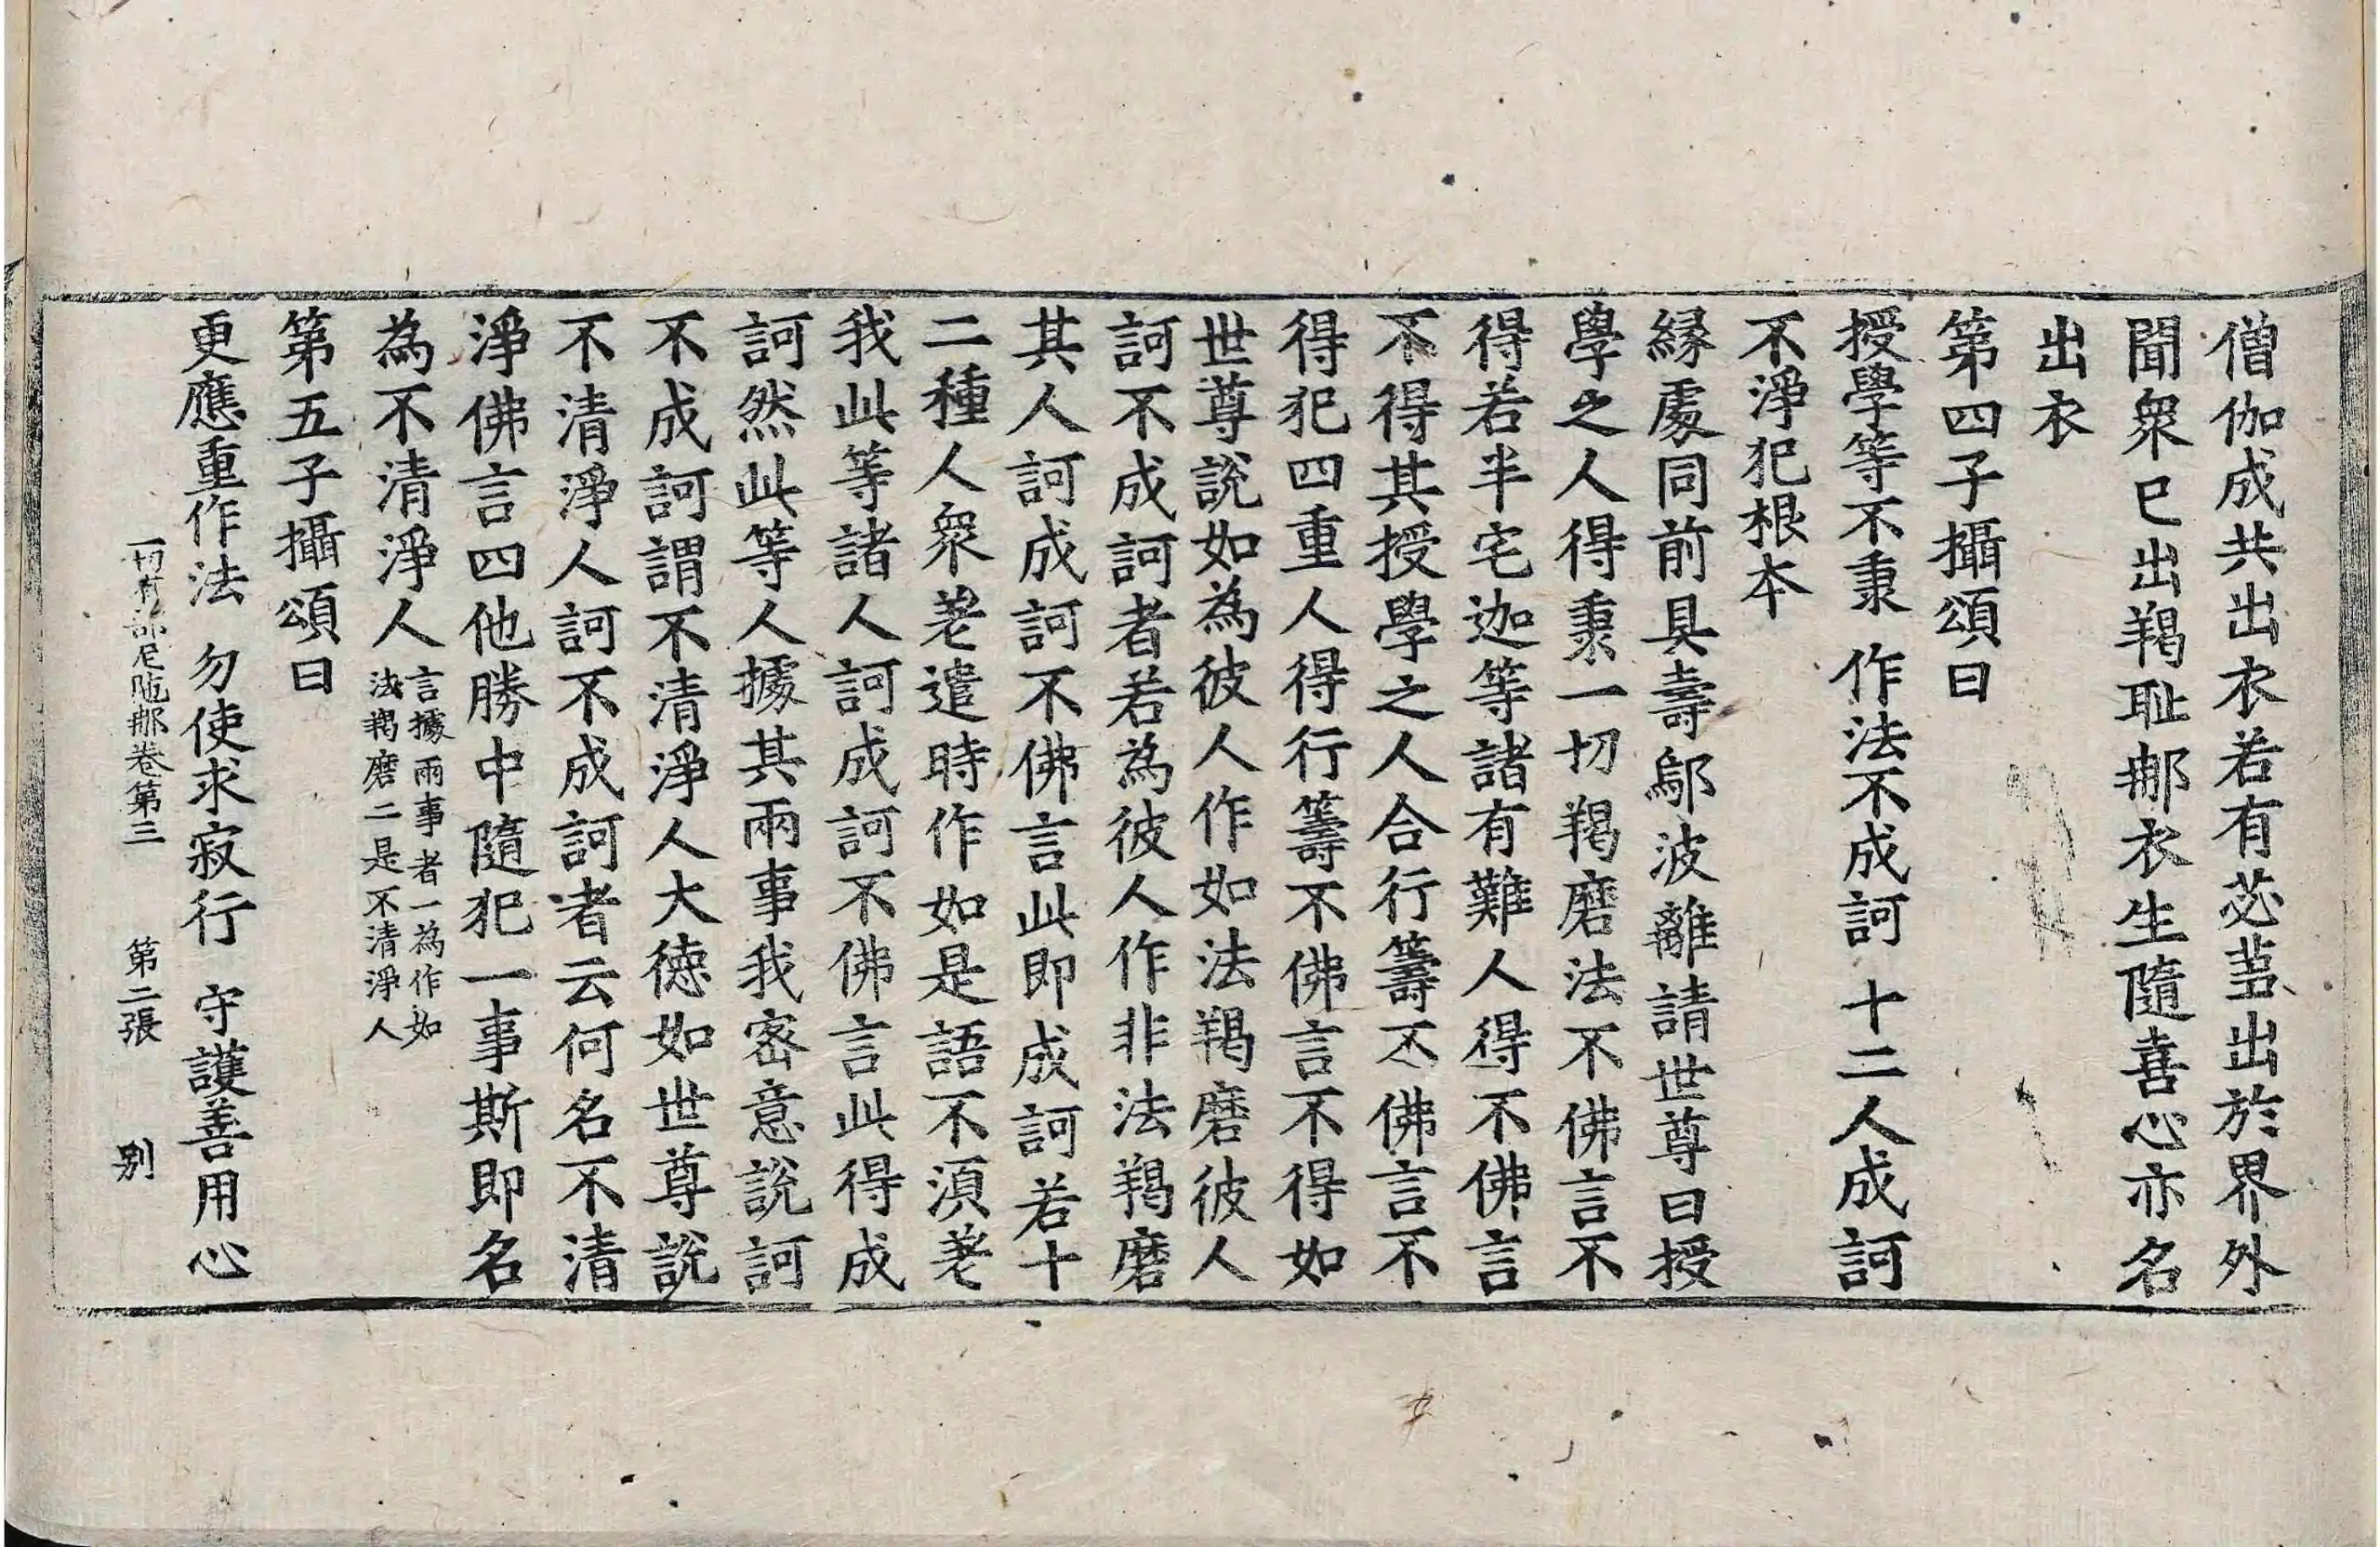 僧伽成共出衣若有苾芻出於界外
聞衆已出羯耻那衣生隨喜心亦名
出衣
第四子攝頌曰
授學等不秉　作法不成訶　十二人成訶
不淨犯根本
緣處同前具壽鄔波離請世尊曰授
學之人得秉一切羯磨法不佛言不
得若半宅迦等諸有難人得不佛言
不得其授學之人合行籌不佛言不
得犯四重人得行籌不佛言不得如
世尊說如為彼人作如法羯磨彼人
訶不成訶者若為彼人作非法羯磨
其人訶成訶不佛言此即成訶若十
二種人衆差遣時作如是語不須差
我此等諸人訶成訶不佛言此得成
訶然此等人據其兩事我密意說訶
不成訶謂不清淨人大德如世尊說
不清淨人訶不成訶者云何名不清
淨佛言四他勝中隨犯一事斯即名
為不清淨人言據兩事者一為作如法羯磨二是不清淨人
第五子攝頌曰
更應重作法　勿使求寂行　守護善用心
一切有部尼陁那卷第三　第二張　別